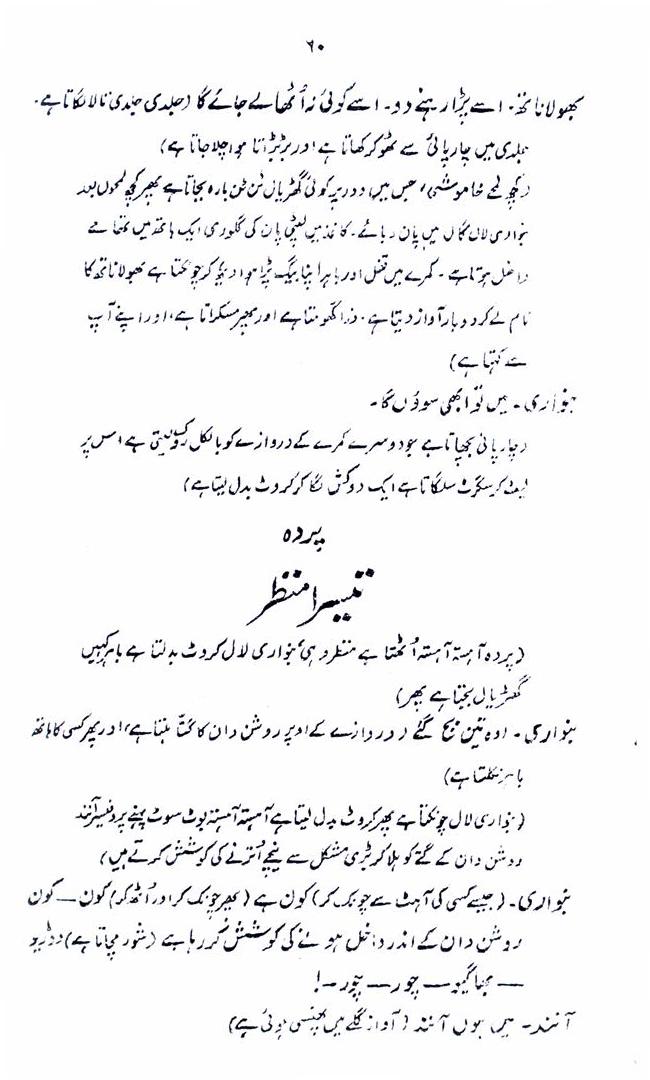 ۶۰
بھولا ناتھ۔ اسے پڑا رہنے دو۔ اسے کوئی نہ اُٹھا لے جائے گا (جلدی جلدی تالا لگاتا ہے۔
جلدی میں چارپائی سے ٹھوکر کھاتا ہے اور بڑبڑاتا ہوا چلا جاتا ہے)
(کچھ لمحے خاموشی، جس میں دور پر کوئی گھڑیال ٹن ٹن بارہ بجاتا ہے پھر کچھ لمحوں بعد
بنواری لال گال میں پان دبائے۔ کاغذ میں لپٹی پان کی گلوری ایک ہاتھ میں تھامے
داخل ہوتا ہے۔ کمرے میں قفل اور باہر اپنا بیگ پڑا ہوا دیکھ کر چونکتا ہے بھولا ناتھ کا
نام لے کر دو بار آواز دیتا ہے۔ ذرا گھومتا ہے اور پھر مسکراتا ہے، اور اپنے آپ
سے کہتا ہے)
بنواری۔ میں تو ابھی سوؤں گا۔
(چارپائی بچھاتا ہے جو دوسرے کمرے کے دروازے کو بالکل روک لیتی ہے اس پر
لیٹ کر سگرٹ سلگاتا ہے ایک دو کش لگا کر کروٹ بدل لیتا ہے)
پردہ
تیسرا منظر
(پردہ آہستہ آہستہ اُٹھتا ہے منظر وہی بنواری لال کروٹ بدلتا ہے باہر کہیں
گھڑیال بجتا ہے پھر)
بنواری۔ اوہ تین بج گئے (دروازے کے اوپر روشن دان کا گتّا ہلتا ہے اور پھر کسی کا ہاتھ
باہر نکلتا ہے)
(بنواری لال چونکتا ہے پھر کروٹ بدل لیتا ہے آہستہ آہستہ بوٹ سوٹ پہنے پروفیسر آنند
روشن دان کے گتے کو ہلا کر بڑی مشکل سے نیچے اُترنے کی کوشش کرتے ہیں)
بنواری۔ (جیسے کسی کی آہٹ سے چونک کر) کون ہے (پھر چونک کر اور اُٹھ کر) کون — کون
روشن دان کے اندر داخل ہونے کی کوشش کر رہا ہے (شور مچاتا ہے) دوڑیو
— بھاگیو — چور — چور —!
آنند۔ میں ہوں آنند (آواز گلے میں پھنسی ہوئی ہے)